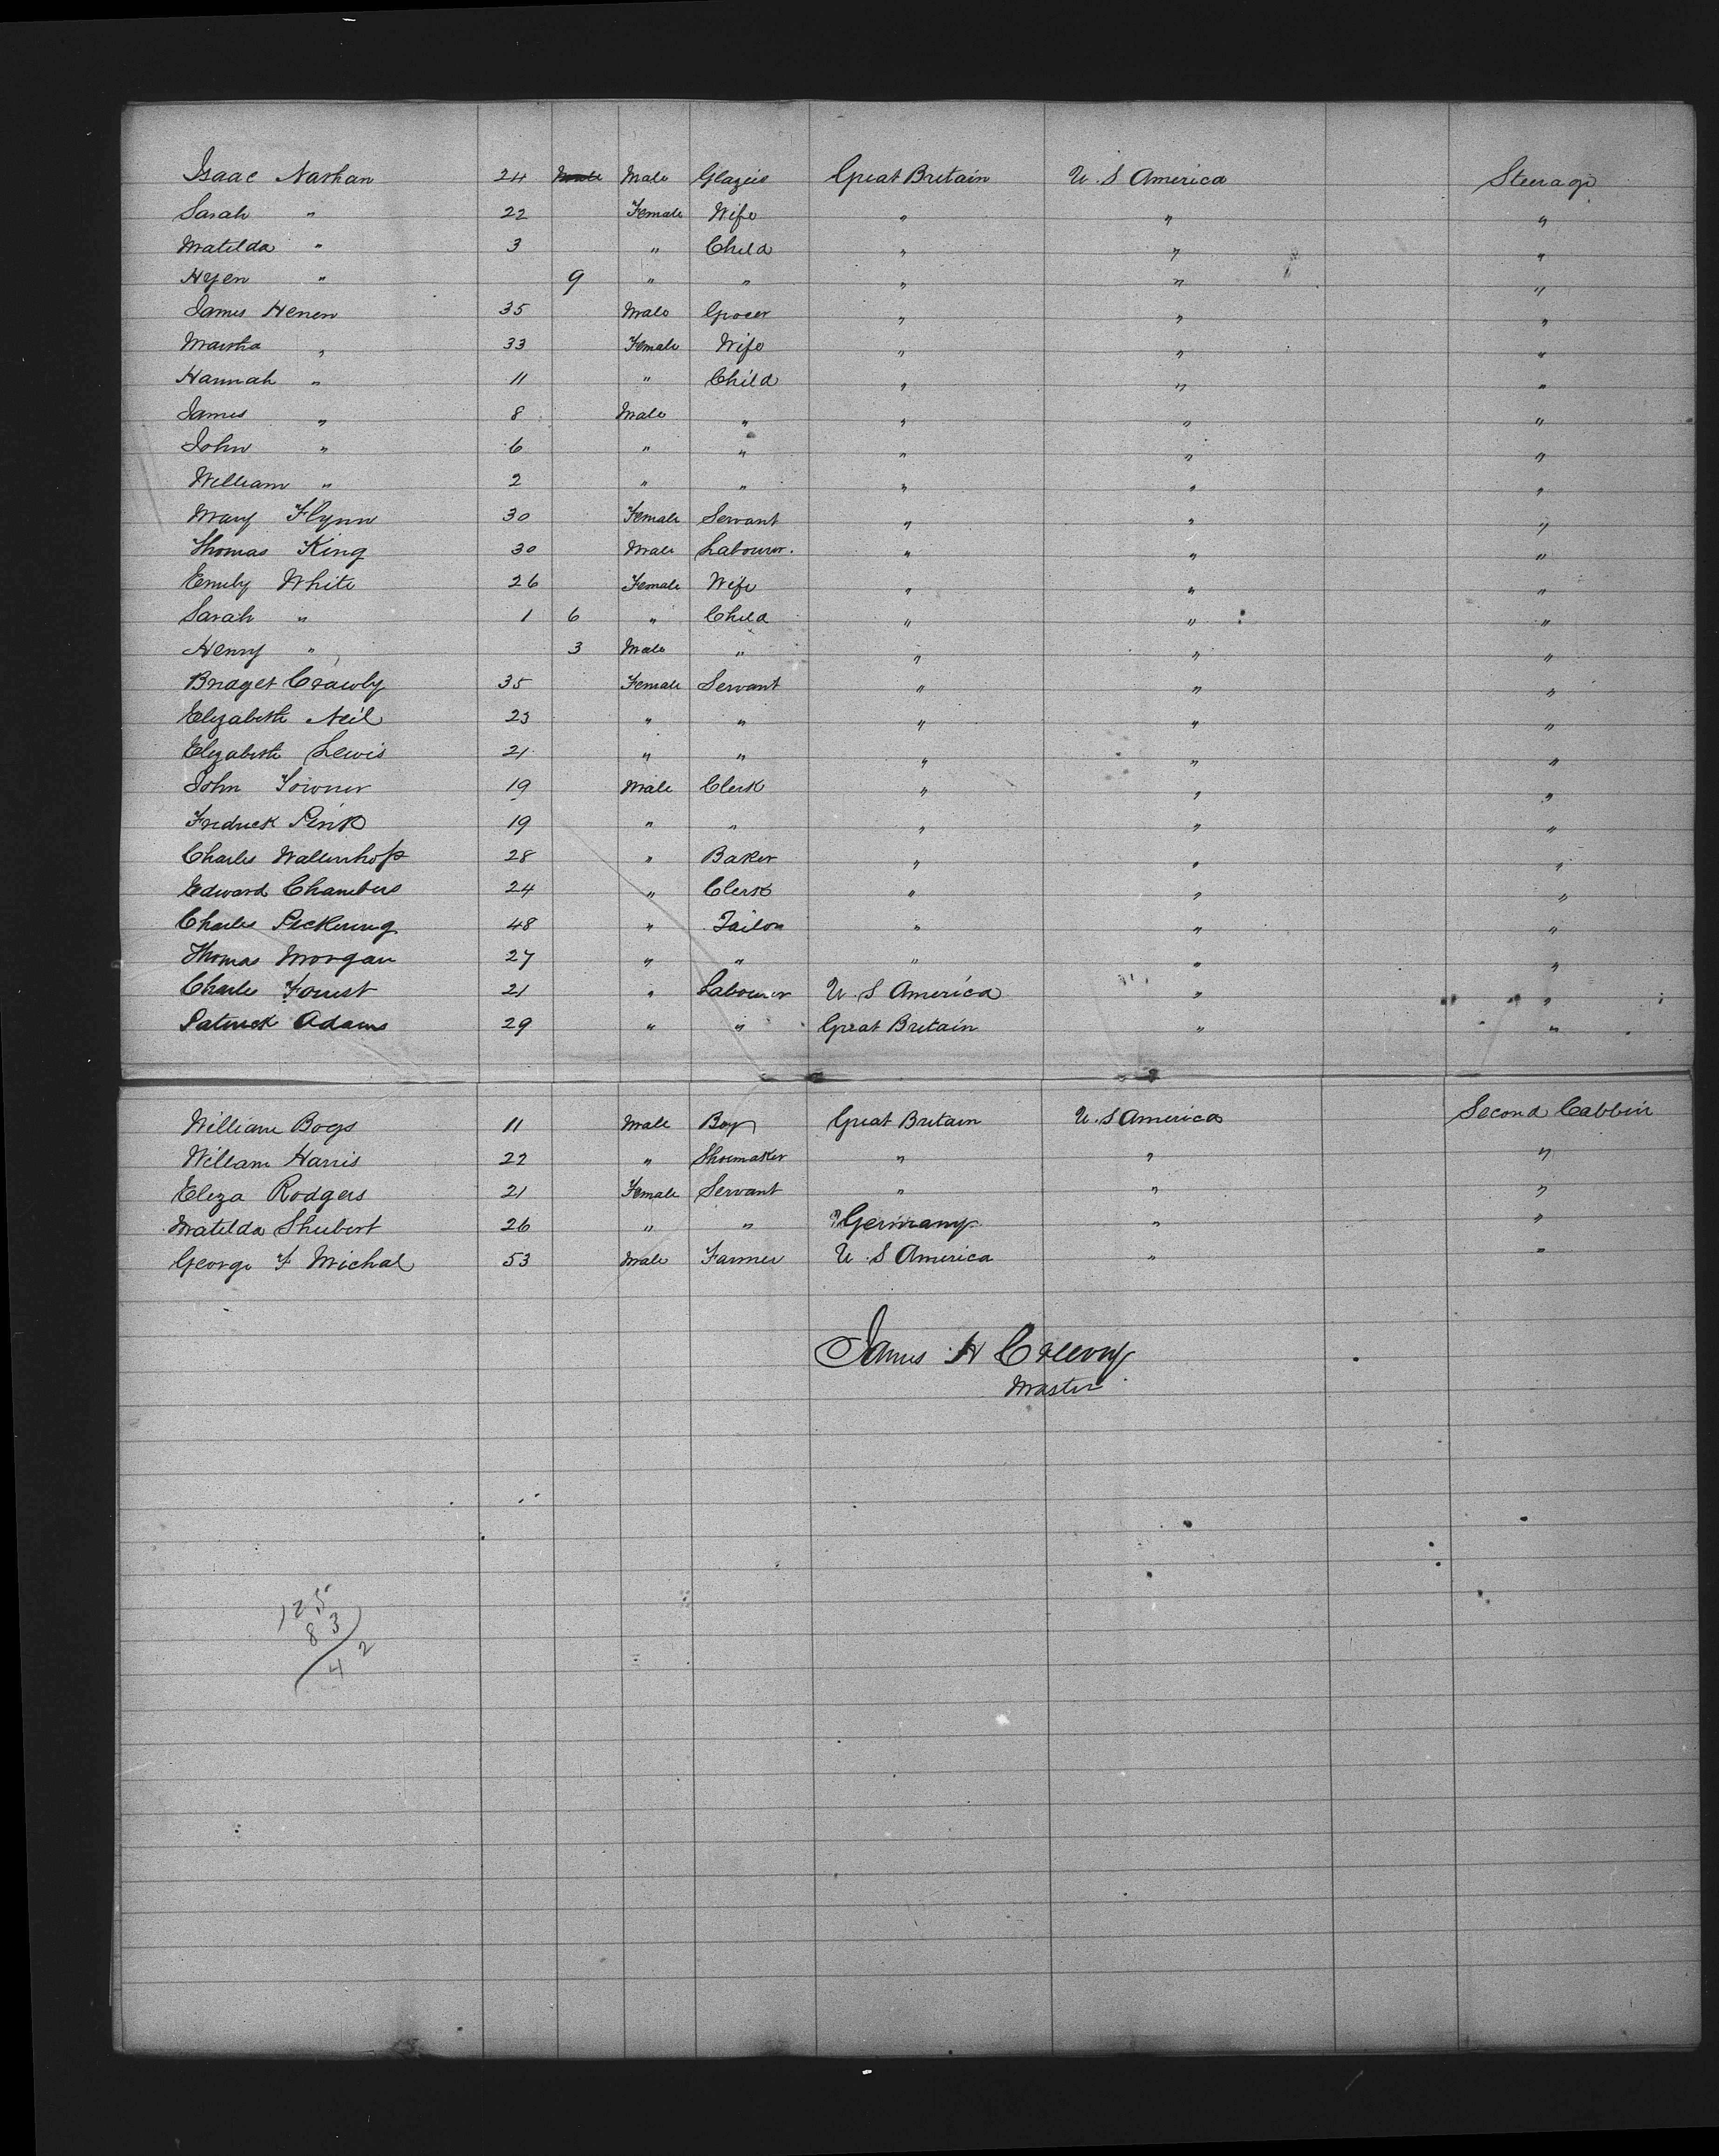 Isaac Nathan 24 Male Male Glazier Great Britain U. S America Steerage
Sarah " 22 Female Wife " " "
Matilda " 3 " Child " " "
Hyen " 9 " " " " "
James Henen 35 Male Grocer " " "
Martha " 33 Female Wife " " "
Hannah " 11 " Child " " "
James " 8 Male " " " "
John " 6 " " " " "
William " 2 " " " " "
Mary Flynn 30 Female Servant " " "
Thomas King 30 Male Labourer. " " "
Emily White 26 Female Wife " " "
Sarah " 1 6 " Child " " "
Henry " 3 Male " " " "
Bridget Crawly 35 Female Servant " " "
Elizabeth Neil 23 " " " " "
Elizabeth Lewis 21 " " " " "
John 19 Male Clerk " " "
Fredrick Pink 19 " " " " "
Charles Wallenhoff 28 " Baker " " "
Edward Chambers 24 " Clerk " " "
Charles Pickering 48 " Tailor " " "
Thomas Morgan 27 " " " " "
Charles Forrest 21 " Labourer U. S America " "
Patrick Adams 29 " " Great Britain " "
William Bogs 11 Male Boy Great Britain U. S America Second Cabbin
William Harris 22 " Shoemaker " " "
Eliza Rodgers 21 Female Servant " " "
Matilda Shubert 26 " " Germany " "
George F Michal 53 Male Farmer U. S America " "
James H
Master
125
83
42